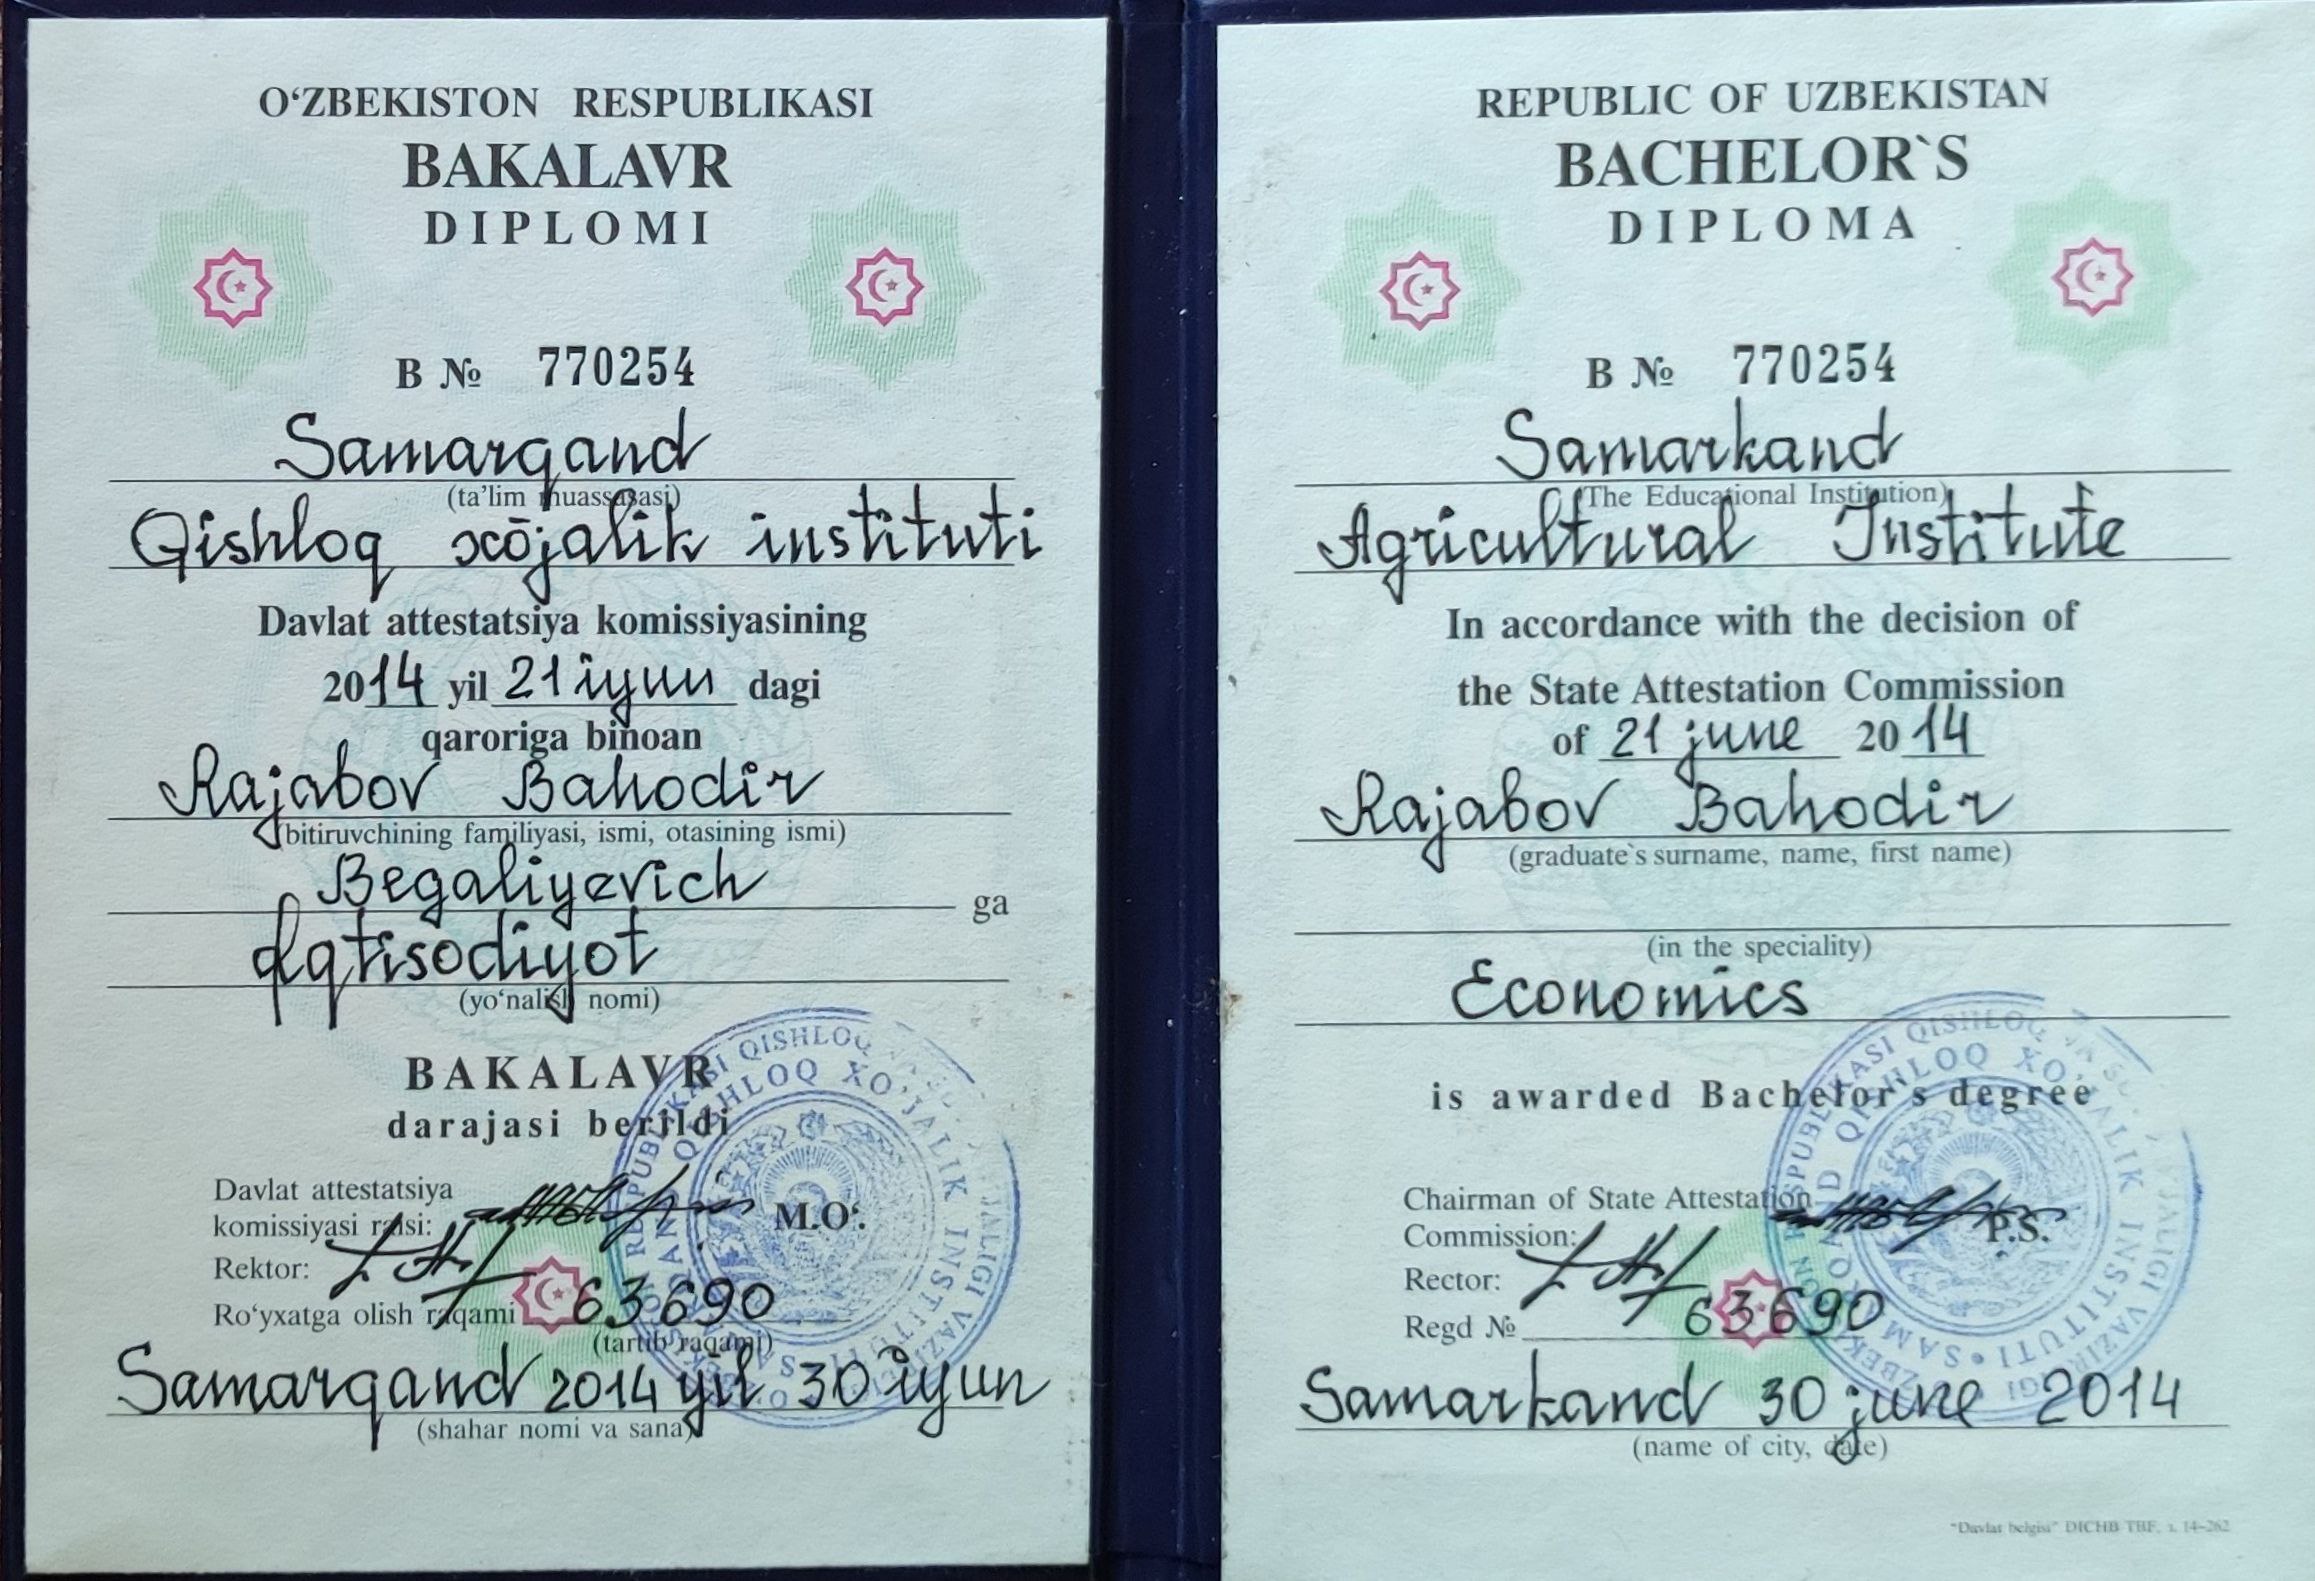 O‘ZBEKISTON RESPUBLIKASI
BAKALAVR
DIPLOMI
B № 770254
Samarqand
(ta’lim muassasasi)
Qishloq xo̅jalik instituti
Davlat attestatsiya komissiyasining
2014 yil 21 iyun dagi
qaroriga binoan
Rajabov Bahodir
(bitiruvchining familiyasi, ismi, otasining ismi)
Begaliyevich ga
Iqtisodiyot
(yo‘nalish nomi)
BAKALAVR
darajasi berildi
Davlat attestatsiya
komissiyasi raisi: M.O‘.
Rektor:
Ro‘yxatga olish raqami 63690
(tartib raqami)
Samarqand 2014 yil 30 iyun
(shahar nomi va sana)
REPUBLIC OF UZBEKISTAN
BACHELOR`S
DIPLOMA
B № 770254
Samarkand
(The Educational Institution)
Agricultural Institute
In accordance with the decision of
the State Attestation Commission
of 21 june 2014
Rajabov Bahodir
(graduate`s surname, name, first name)
(in the speciality)
Economics
is awarded Bachelor`s degree
Chairman of State Attestation
Commission: P.S.
Rector:
Regd № 63690
Samarkand 30 june 2014
(name of city, date)
"Davlat belgisi" DICHB TBF, z. 14–262
QISHLOQ XO’JALIK INSTITUTI